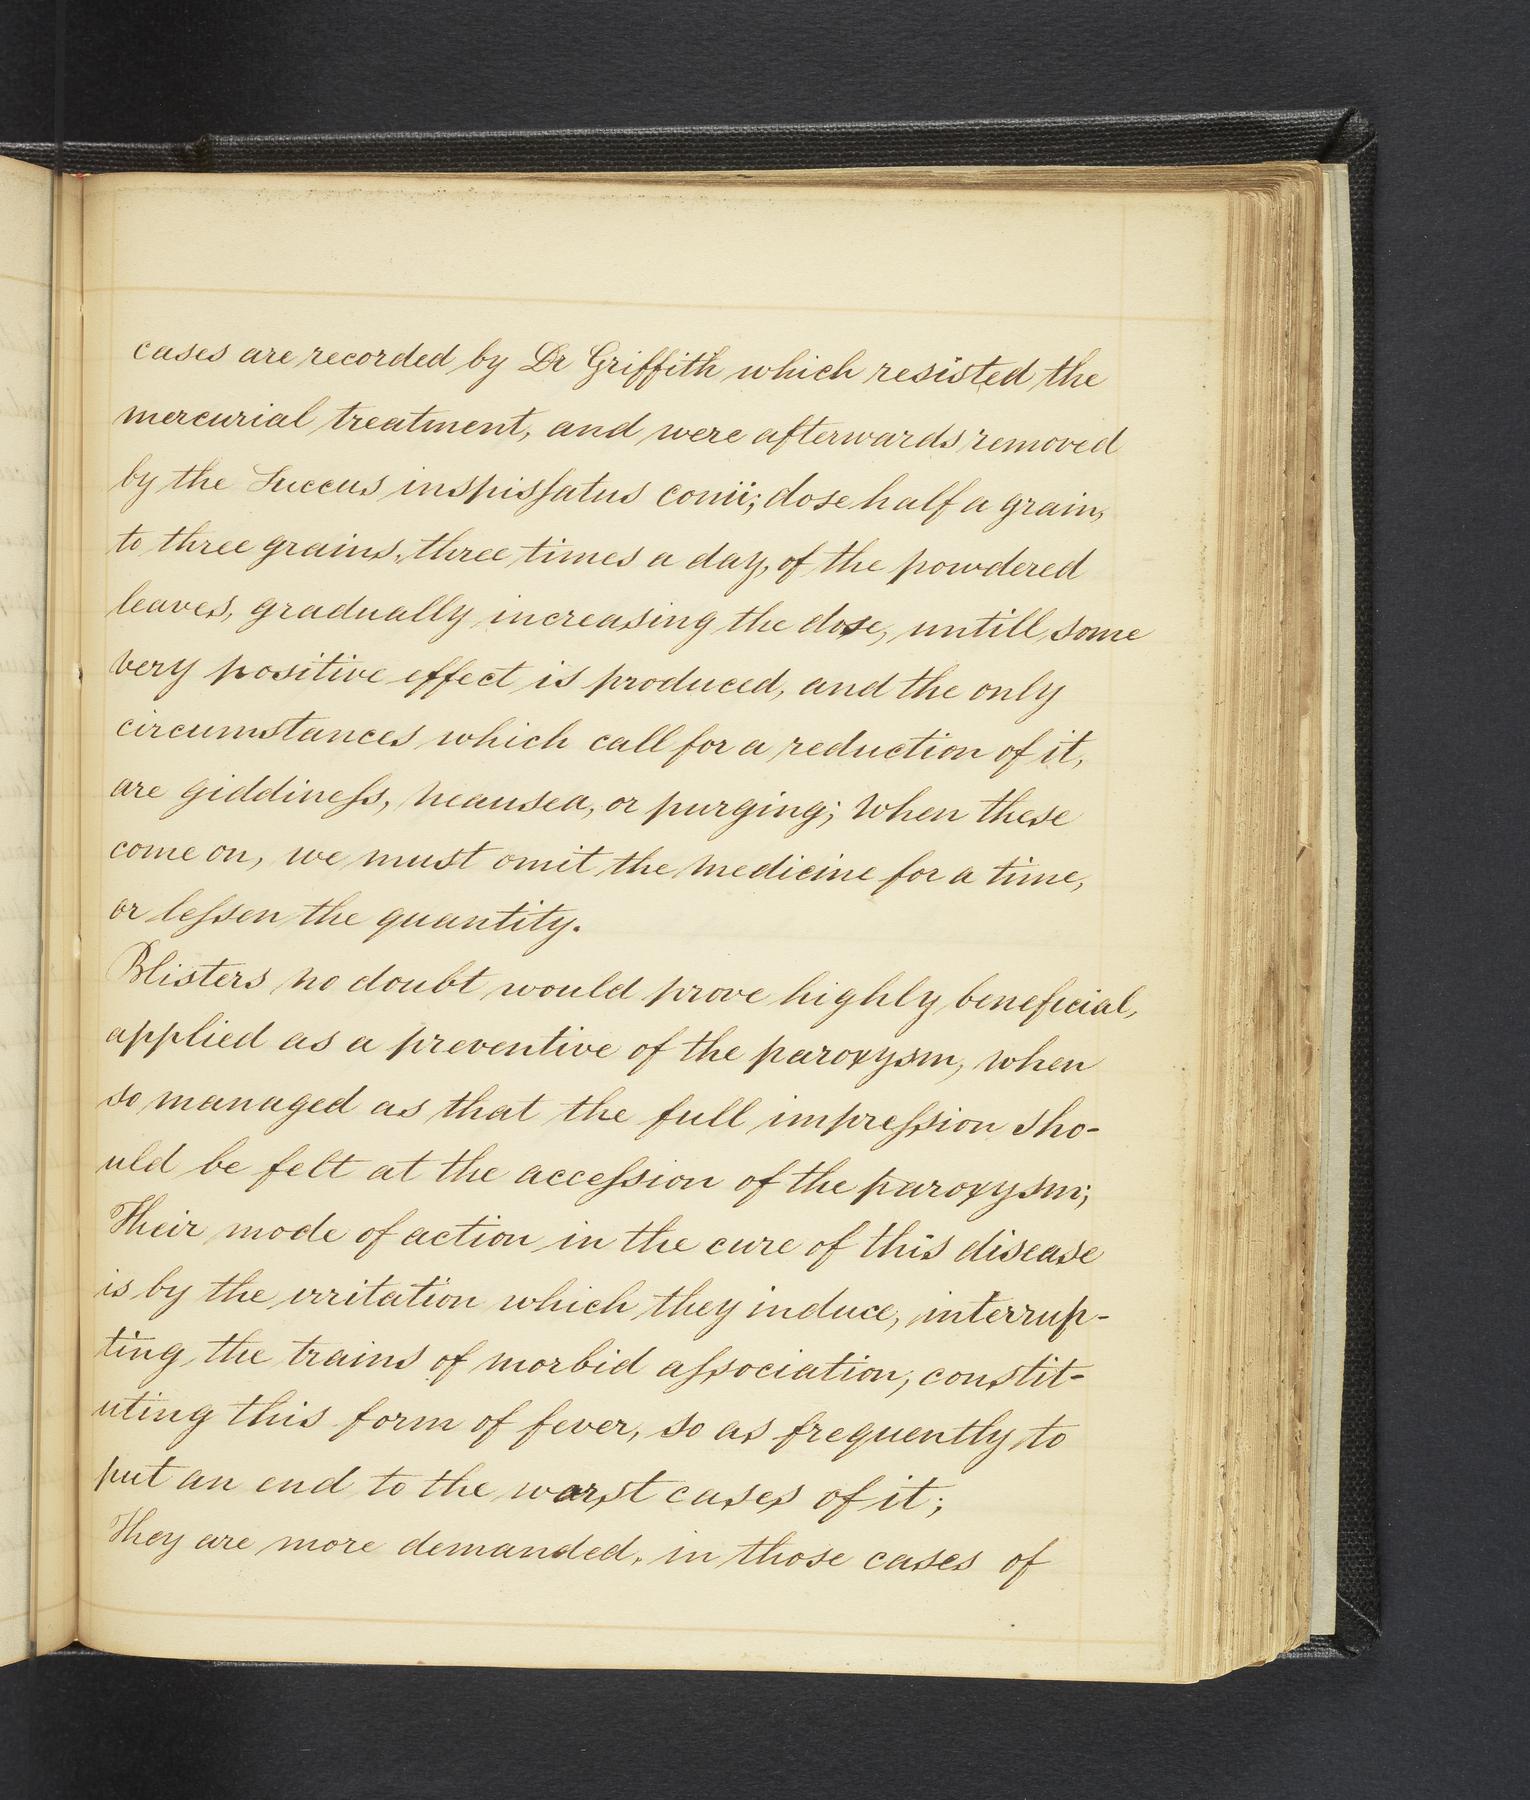 cases are recorded by Dr Griffith which resisted the
mercurial treatment, and were afterwards removed
by the Succus inspissatus conii; dose half a grain,
to three grains, three times a day, of the powdered
leaves, gradually increasing the dose, untill some
very positive effect is produced, and the only
circumstances which call for a reduction of it,
are giddiness, neausea, or purging; When these
come on, we must omit the medicine for a time,
or lessen the quantity.
Blisters no doubt would prove highly beneficial,
applied as a preventive of the paroxysm, when
so managed as that the full impression sho-
uld be felt at the accession of the paroxysm;
Their mode of action in the cure of this disease
is by the irritation which they induce, interrup-
ting the trains of morbid association, constit-
uting this form of fever, so as frequently to
put an end to the worst cases of it;
They are more demanded, in those cases of